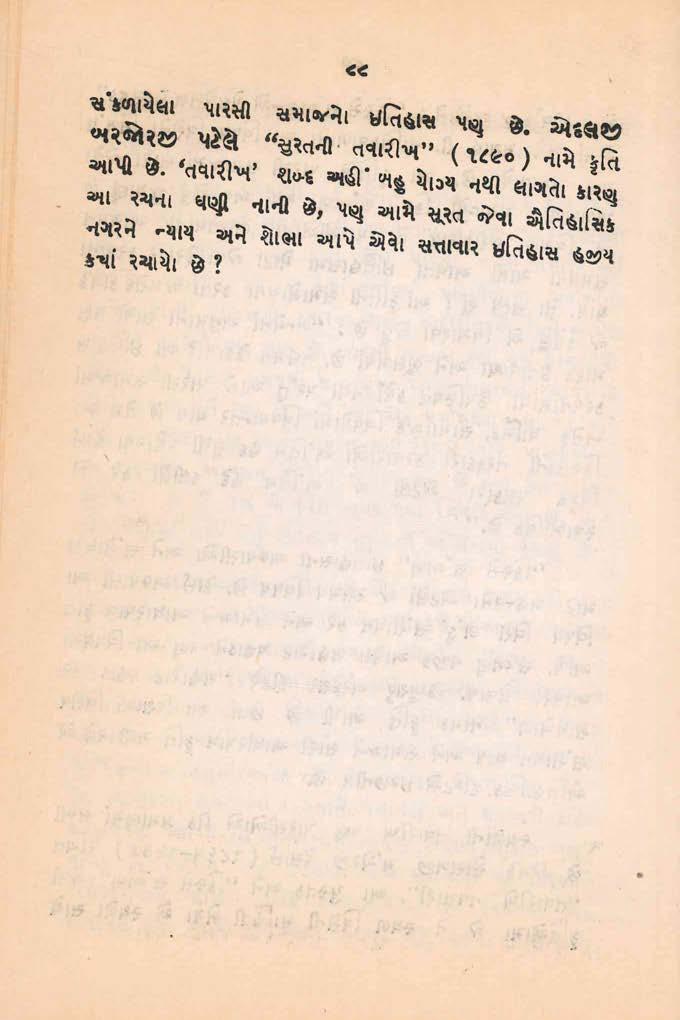 ૯૯
સંકળાયેલા પારસી સમાજનો ઇતિહાસ પણ છે. એદલજી
બરજોરજી પટેલે “સુરતની તવારીખ” (૧૮૯૦) નામે કૃતિ
આપી છે. ‘તવારીખ’ શબ્દ અહીં બહુ યોગ્ય નથી લાગતો કારણ
આ રચના ઘણી નાની છે, પણ આમે સૂરત જેવા ઐતિહાસિક
નગરને ન્યાય અને શોભા આપે એવો સત્તાવાર ઇતિહાસ હજીય
કયાં રચાયો છે ?